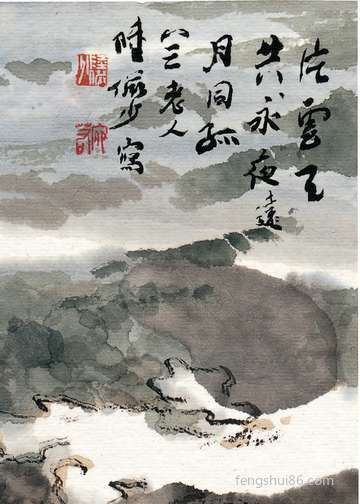 片雲天
共永夜遠
月同孤
八三老人
陸儼少寫
fengshui86.com